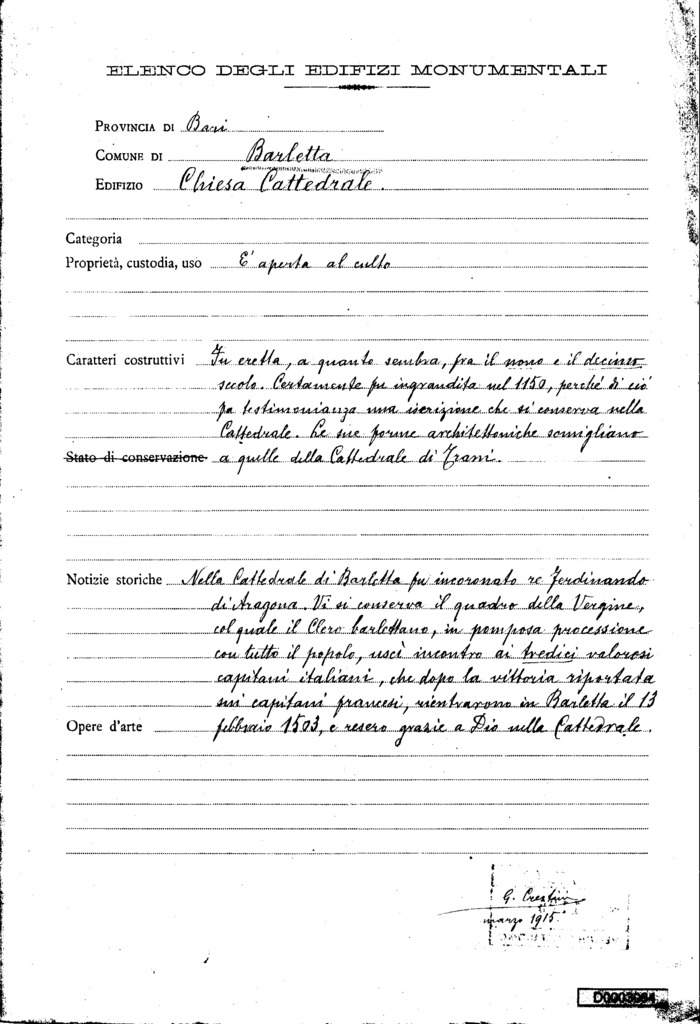 ELENCO DEGLI EDIFIZI MONUMENTALI
PROVINCIA DI Bari
COMUNE DI Barletta
EDIFIZIO Chiesa Cattedrale.
Categoria
Proprietà, custodia, uso E' aperta al culto
Caratteri costruttivi Fu eretta, a quanto sembra, fra il nono e il decimo
secolo. Certamente fu ingrandita nel 1150, perché di ciò
fa testimonianza una iscrizione che si conserva nella
Cattedrale. Le sue forme architettoniche somigliano
Stato di conservazione a quelle della Cattedrale di Trani.
Notizie storiche Nella Cattedrale di Barletta fu incoronato re Ferdinando
di Aragona. Vi si conserva il quadro della Vergine,
col quale il Clero barlettano, in pomposa processione
con tutto il popolo, uscì incontro ai tredici valorosi
capitani italiani, che dopo la vittoria riportata
sui capitani francesi, rientrarono in Barletta il 13
Opere d'arte febbraio 1503, e resero grazie a Dio nella Cattedrale.
G.
marzo 1915
D0003084